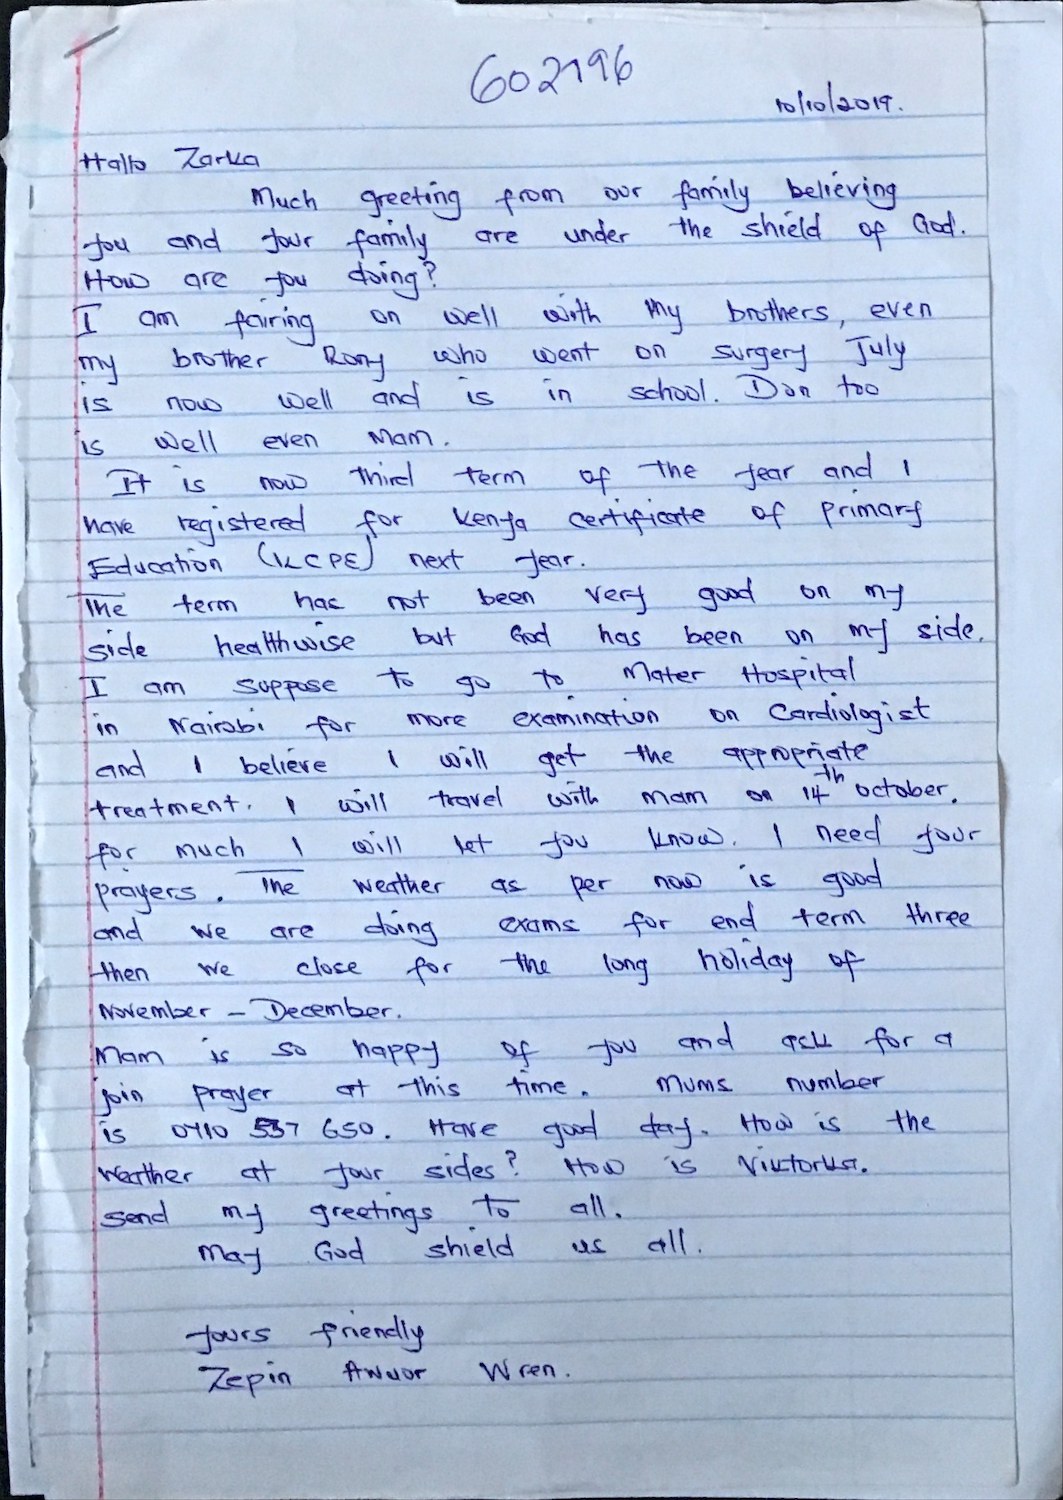 602796
10/10/2019.
Hallo Zarka
Much greeting from our family believing
you and your family are under the shield of God.
How are you doing?
I am fairing on well with my brothers, even
my brother Rony who went on surgery July
is now well and is in school. Don too
is well even Mam.
It is now third term of the year and I
have registered for Kenya certificate of primary
Education (KCPE) next year.
The term has not been very good on my
side healthwise but God has been on my side.
I am suppose to go to Mater Hospital
in Nairobi for more examination on Cardiologist
and I believe I will get the appropriate
treatment. I will travel with mam on 14th october.
for much I will let you know. I need your
prayers. The weather as per now is good
and we are doing exams for end term three
then we close for the long holiday of
November - December.
Mam is so happy of you and ask for a
join prayer at this time. Mums number
is 0710 557 650. Have good day. How is the
weather at your sides? How is Viktorka.
send my greetings to all.
May God shield us all.
Yours friendly
Zepin Awuor Wren.